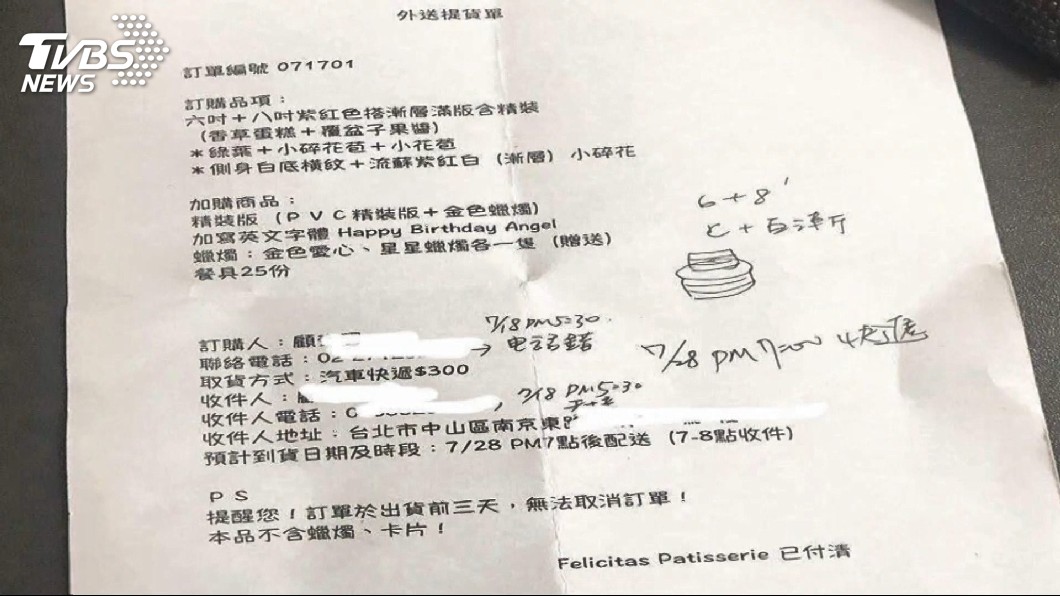 TVBS
NEWS
外送提貨單
訂單編號 071701
訂購品項：
六吋＋八吋紫紅色搭漸層滿版含精裝
（香草蛋糕＋覆盆子果醬）
＊綠葉＋小碎花苞＋小花苞
＊側身白底橫紋＋流蘇紫紅白（漸層）小碎花
加購商品：
精裝版（ＰＶＣ精裝版＋金色蠟燭）
加寫英文字體 Happy Birthday Angel
蠟燭：金色愛心、星星蠟燭各一隻（贈送）
餐具25份
6+8'
7/18 PM5:30
訂購人：顧
聯絡電話：02
→ 电话錯
取貨方式：汽車快遞$300
7/28 PM 7:00 快遞
收件人：
7/18 PM5:30
收件人電話：0
收件人地址：台北市中山區南京東
預計到貨日期及時段：7/28 PM7點後配送（7-8點收件）
ＰＳ
提醒您！訂單於出貨前三天，無法取消訂單！
本品不含蠟燭、卡片！
Felicitas Patisserie 已付清